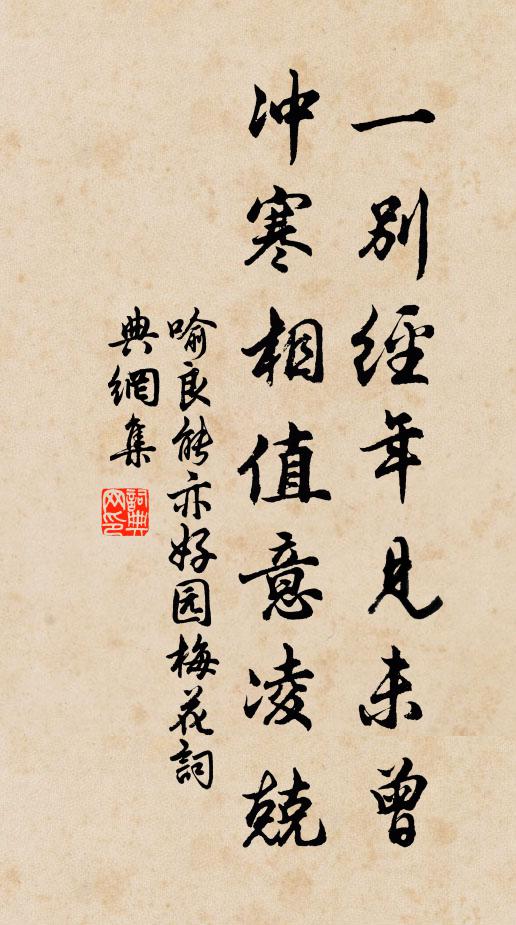 一別經年見未曾
冲寒相值意凌兢
喻良能亦好园梅花詞
典網集
詞典網印